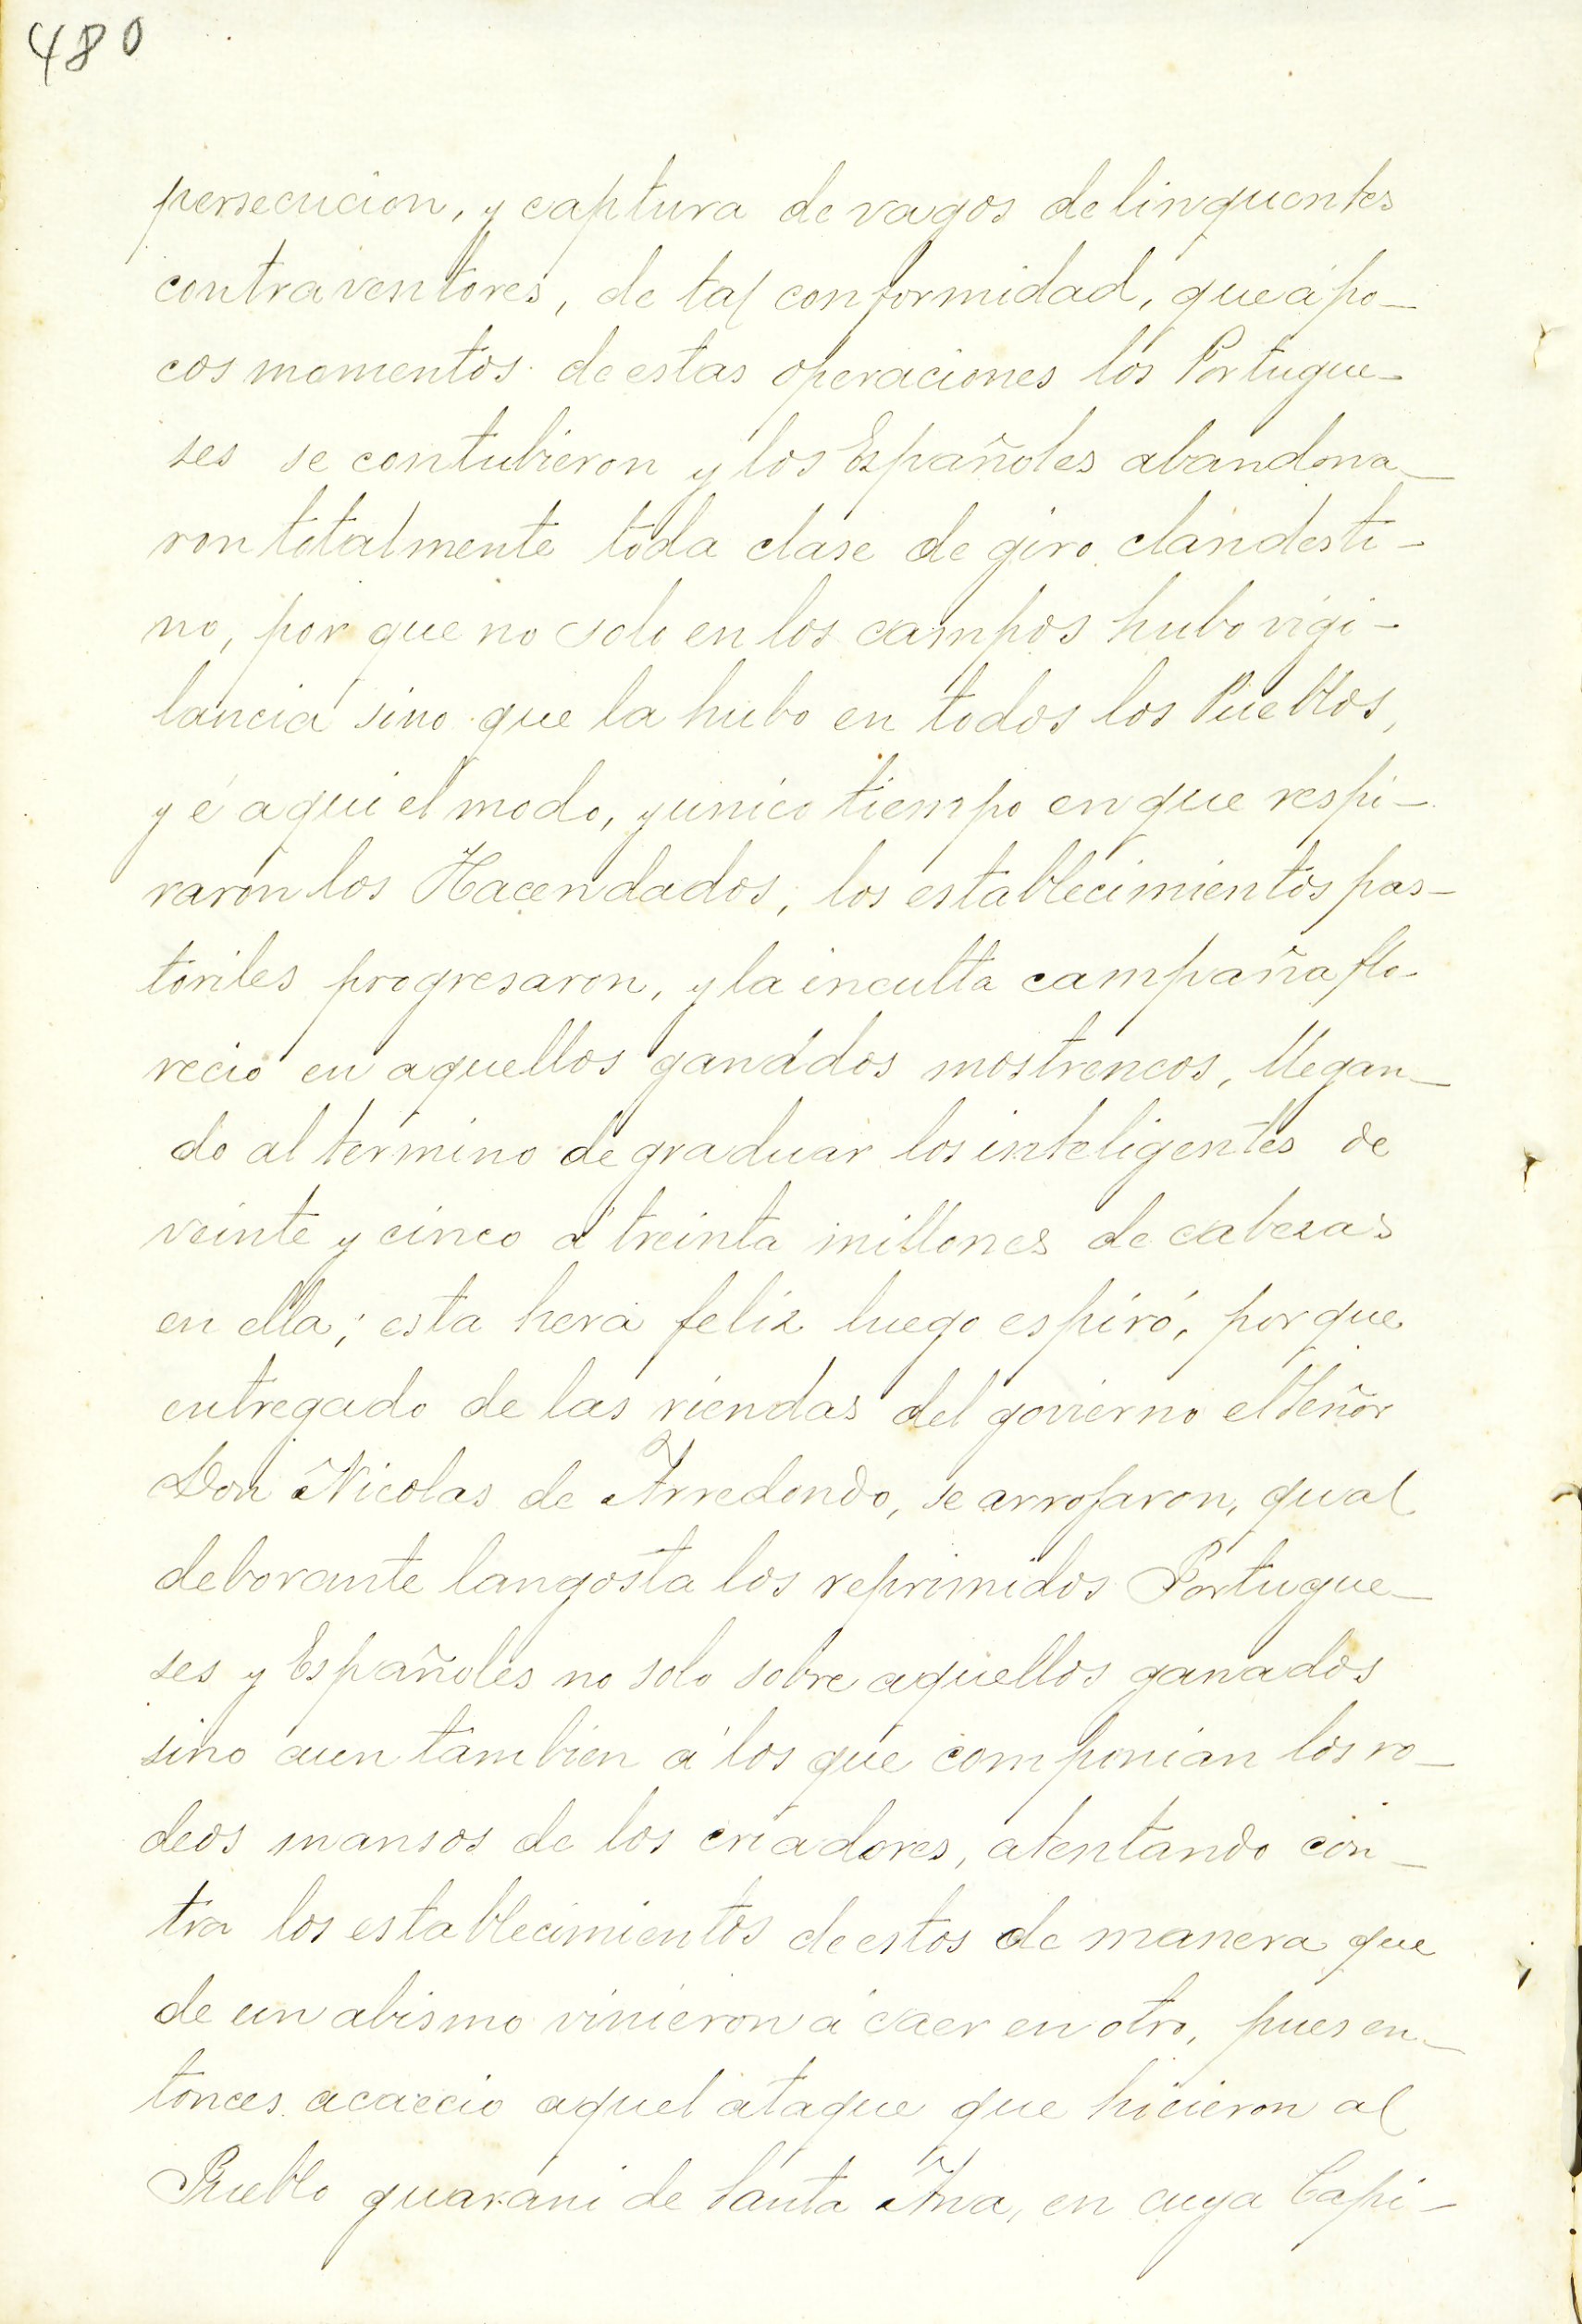 480
persecucion, y captura de vagos delinquentes
contraventores, de tal conformidad, que á po-
cos momentos de estas operaciones los Portugue-
ses se contubieron y los Españoles abandona-
ron totalmente toda clase de giro clandesti-
no, por que no solo en los campos hubo vigi-
lancia sino que la hubo en todos los Pueblos,
y é aqui el modo, y unico tiempo en que respi-
raron los Hacendados, los establecimientos pas-
toriles progresaron, y la inculta campaña flo-
recio en aquellos ganados mostrencos, llegan-
do al termino de graduar los inteligentes de
veinte y cinco á treinta millones de cabezas
en ella; esta hera feliz luego espiró, por que
entregado de las riendas del govierno el Señor
Don Nicolas de Arredondo, se arrojaron, qual
deborante langosta los reprimidos Portugue-
ses y Españoles no solo sobre aquellos ganados
sino aun tambien á los que componian los ro-
deos mansos de los criadores, atentando con-
tra los establecimientos de estos de manera que
de un abismo vinieron á caer en otro, pues en-
tonces acaecio aquel ataque que hicieron al
Pueblo guarani de Santa Ana, en cuya Capi-